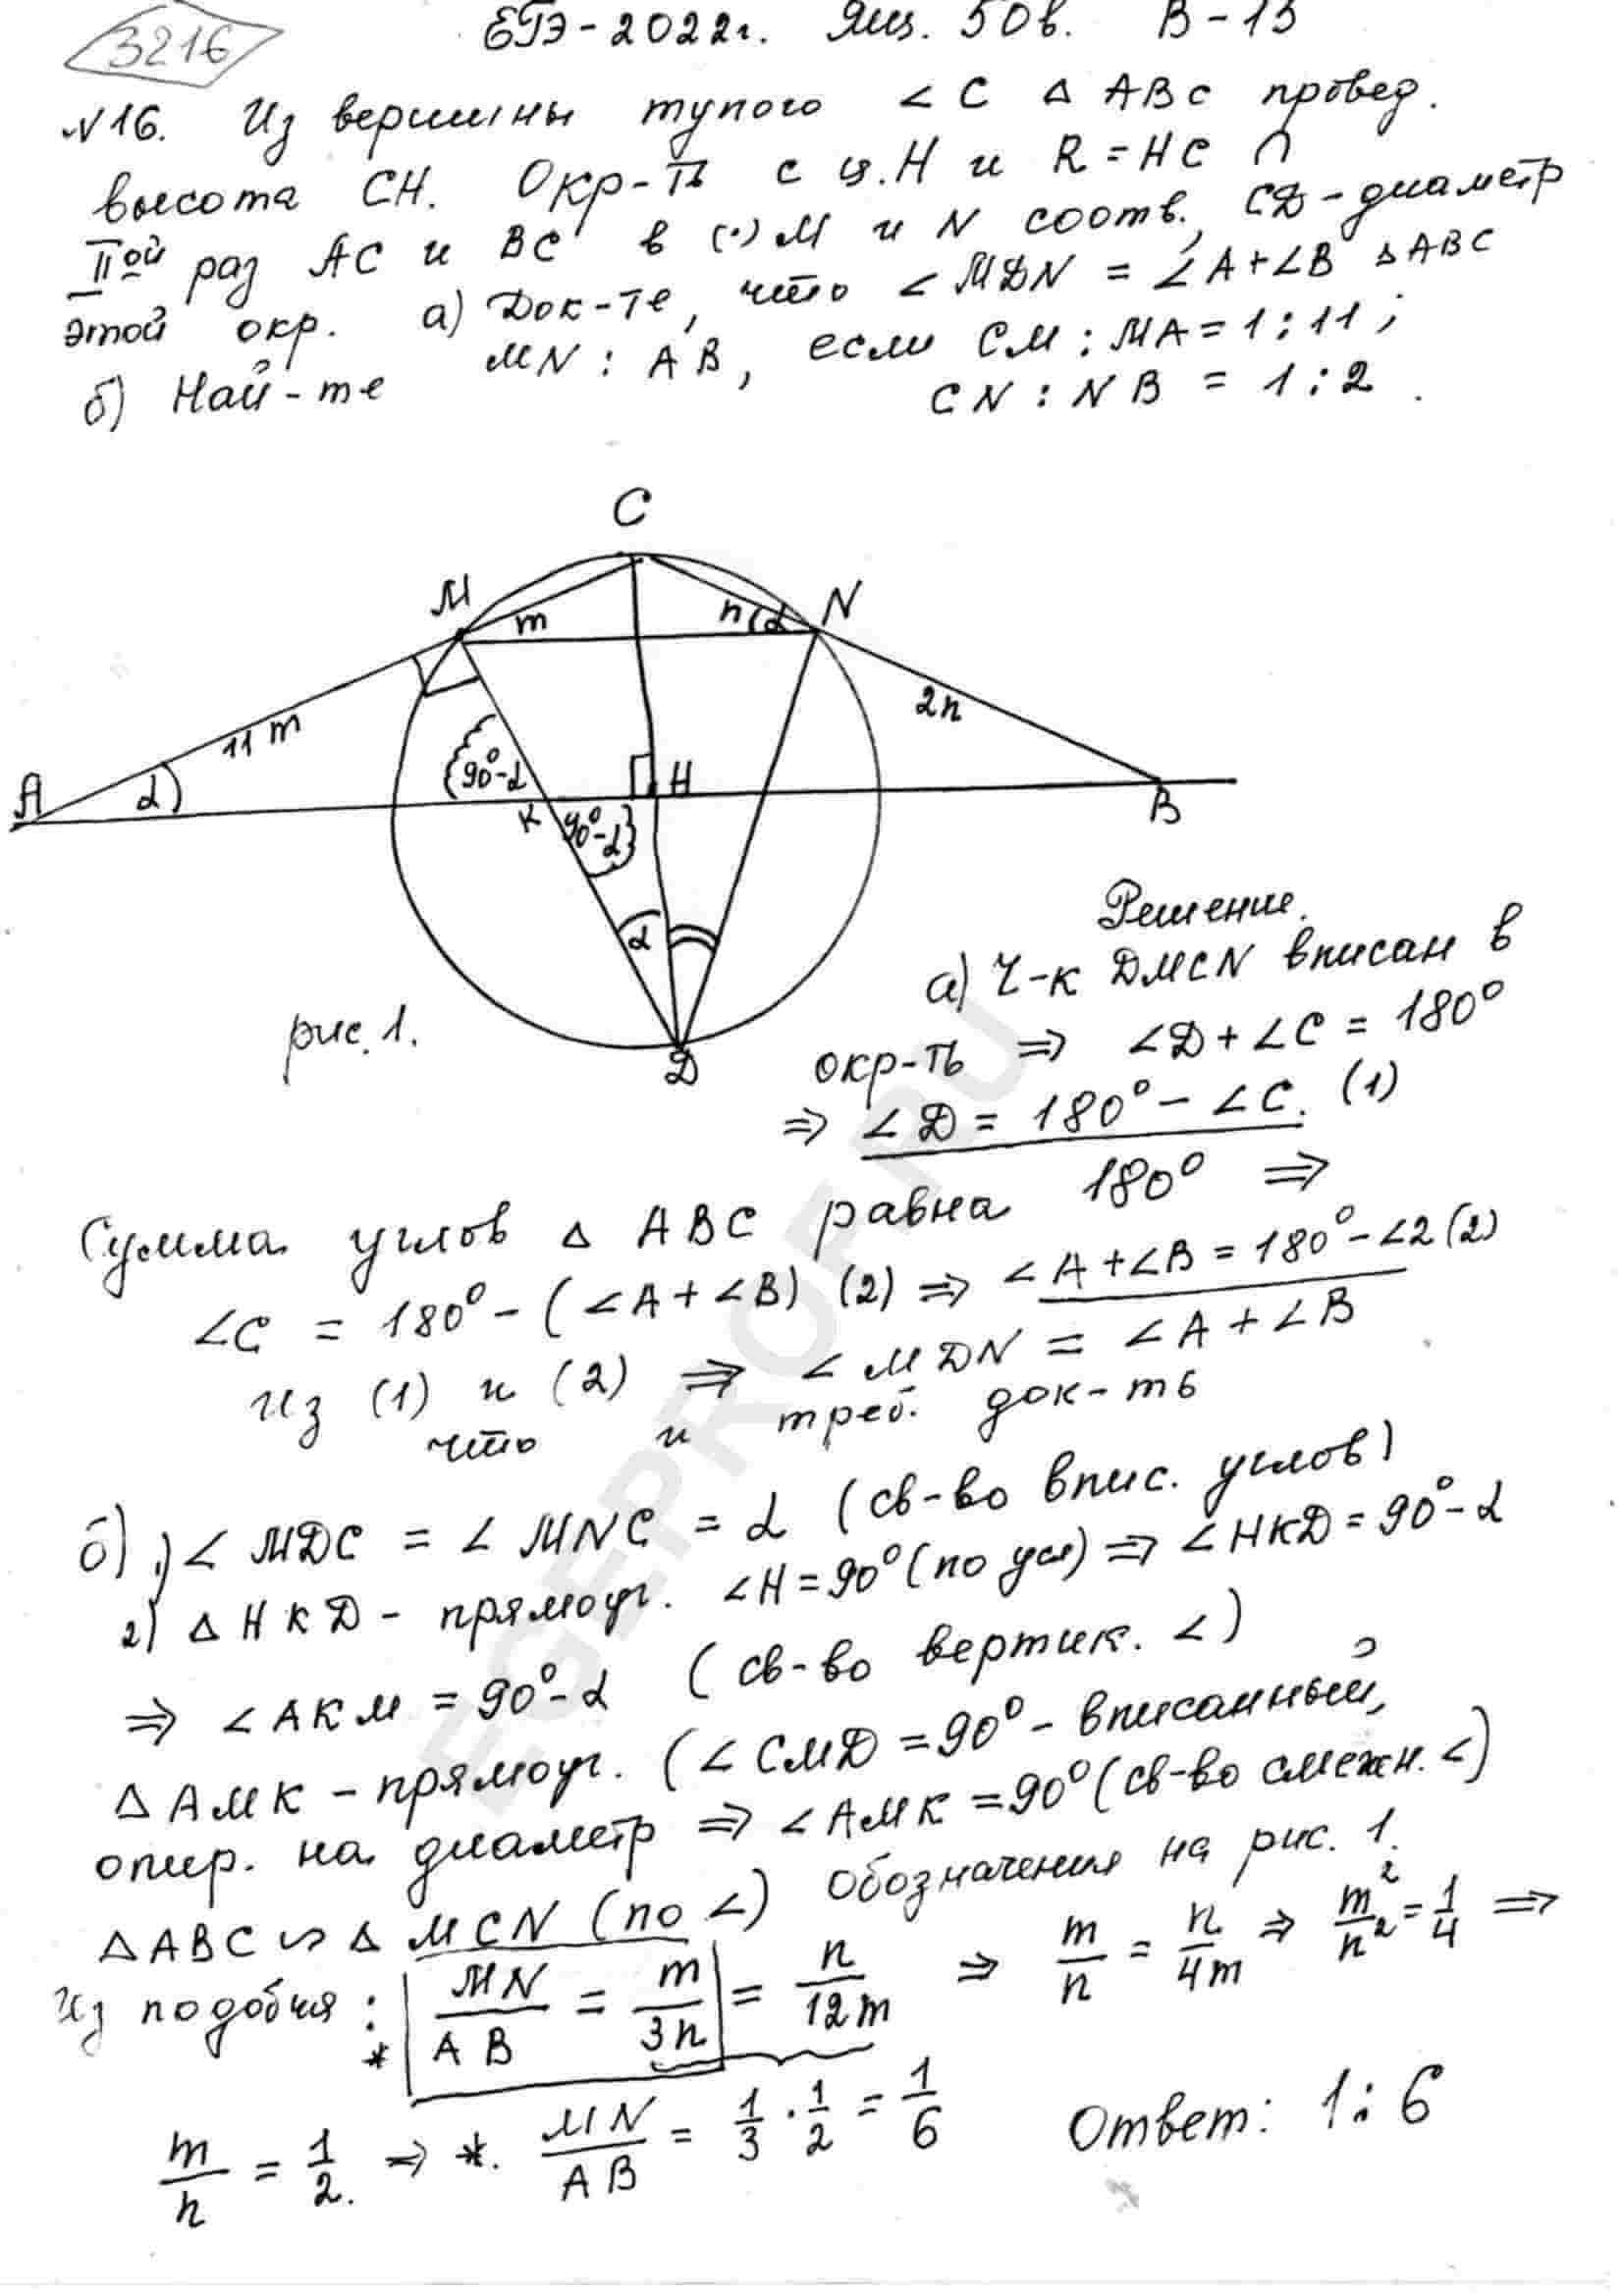 3216
ЕГЭ-2022г. Ящ. 50в. В-13
№16. Из вершины тупого ∠C △ ABC провед.
высота CH. Окр-ть с ц.H и R=HC ∩
IIой раз AC и BC в (·) M и N соотв., CD-диаметр
этой окр. а) Док-те, что ∠MDN = ∠A+∠B △ABC
б) Най-те MN : AB, если CM : MA = 1:11 ;
CN : NB = 1:2 .
C
M
m
n
α
N
11 m
2n
A
α
90°-α
H
K
90°-α
B
α
рис. 1.
D
Решение.
а) Ч-к DMCN вписан в
окр-ть ⇒ ∠D + ∠C = 180°
⇒ ∠D = 180° - ∠C. (1)
Сумма углов △ ABC равна 180° ⇒
∠C = 180° - (∠A + ∠B) (2) ⇒ ∠A+∠B = 180° - ∠2 (2)
из (1) и (2) ⇒ ∠MDN = ∠A + ∠B
что и треб. док-ть
б) 1) ∠MDC = ∠MNC = α (св-во впис. углов)
2) △ HKD - прямоуг. ∠H = 90° (по усл) ⇒ ∠HKD = 90°-α
⇒ ∠AKM = 90°-α (св-во вертик. ∠)
△ AMK - прямоуг. (∠CMD = 90° - вписанный,
опир. на диаметр ⇒ ∠AMK = 90° (св-во смежн. ∠)
△ABC ∽ △ MCN (по ∠) Обозначения на рис. 1.
Из подобия : * MN/AB = m/3n = n/12m ⇒ m/n = n/4m ⇒ m²/n² = 1/4 ⇒
m/n = 1/2. ⇒ *. MN/AB = 1/3 · 1/2 = 1/6 Ответ: 1:6
EGEPROF.RU